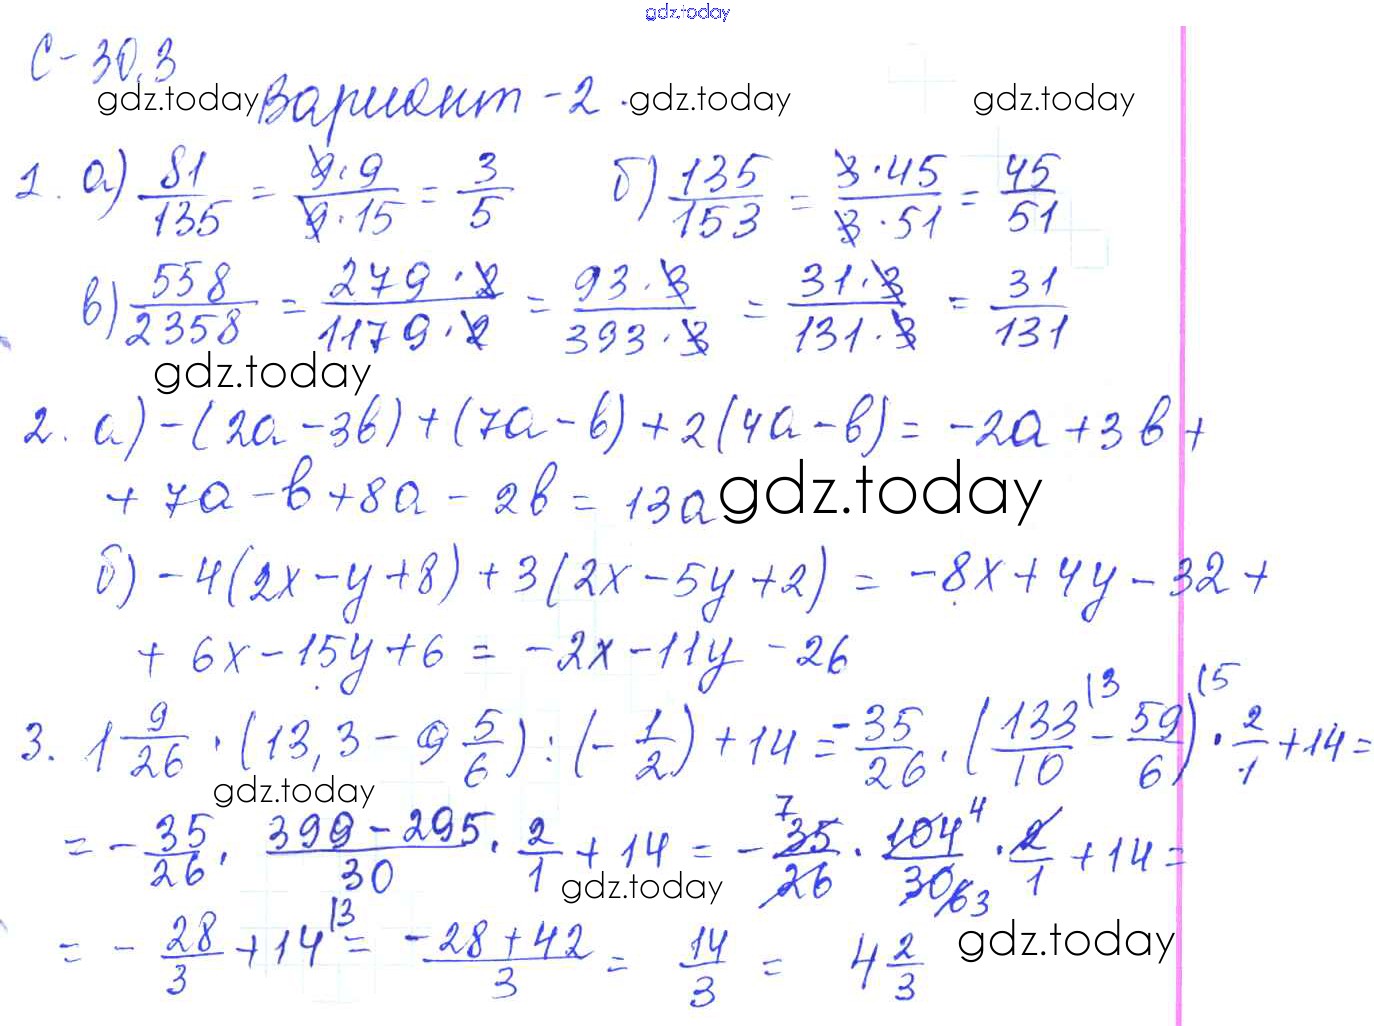 gdz.today
С-30,3
gdz.today Вариант-2. gdz.today gdz.today
1. а) 81/135 = 9·9/9·15 = 3/5 б) 135/153 = 3·45/3·51 = 45/51
в) 558/2358 = 279·2/1179·2 = 93·3/393·3 = 31·3/131·3 = 31/131
gdz.today
2. а) -(2a-3b)+(7a-b)+2(4a-b) = -2a+3b+
+7a-b+8a-2b = 13a gdz.today
б) -4(2x-y+8)+3(2x-5y+2) = -8x+4y-32+
+6x-15y+6 = -2x-11y-26
3. 1 9/26 · (13,3 - 9 5/6) : (-1/2) + 14 = -35/26 · (133/10 (3 - 59/6) (5 · 2/1 + 14 =
gdz.today
= -35/26 · 399-295/30 · 2/1 + 14 = - 7 35/26 · 104 4/30 6 3 · 2/1 + 14 =
gdz.today
= -28/3 + 14 (3 = -28+42/3 = 14/3 = 4 2/3 gdz.today